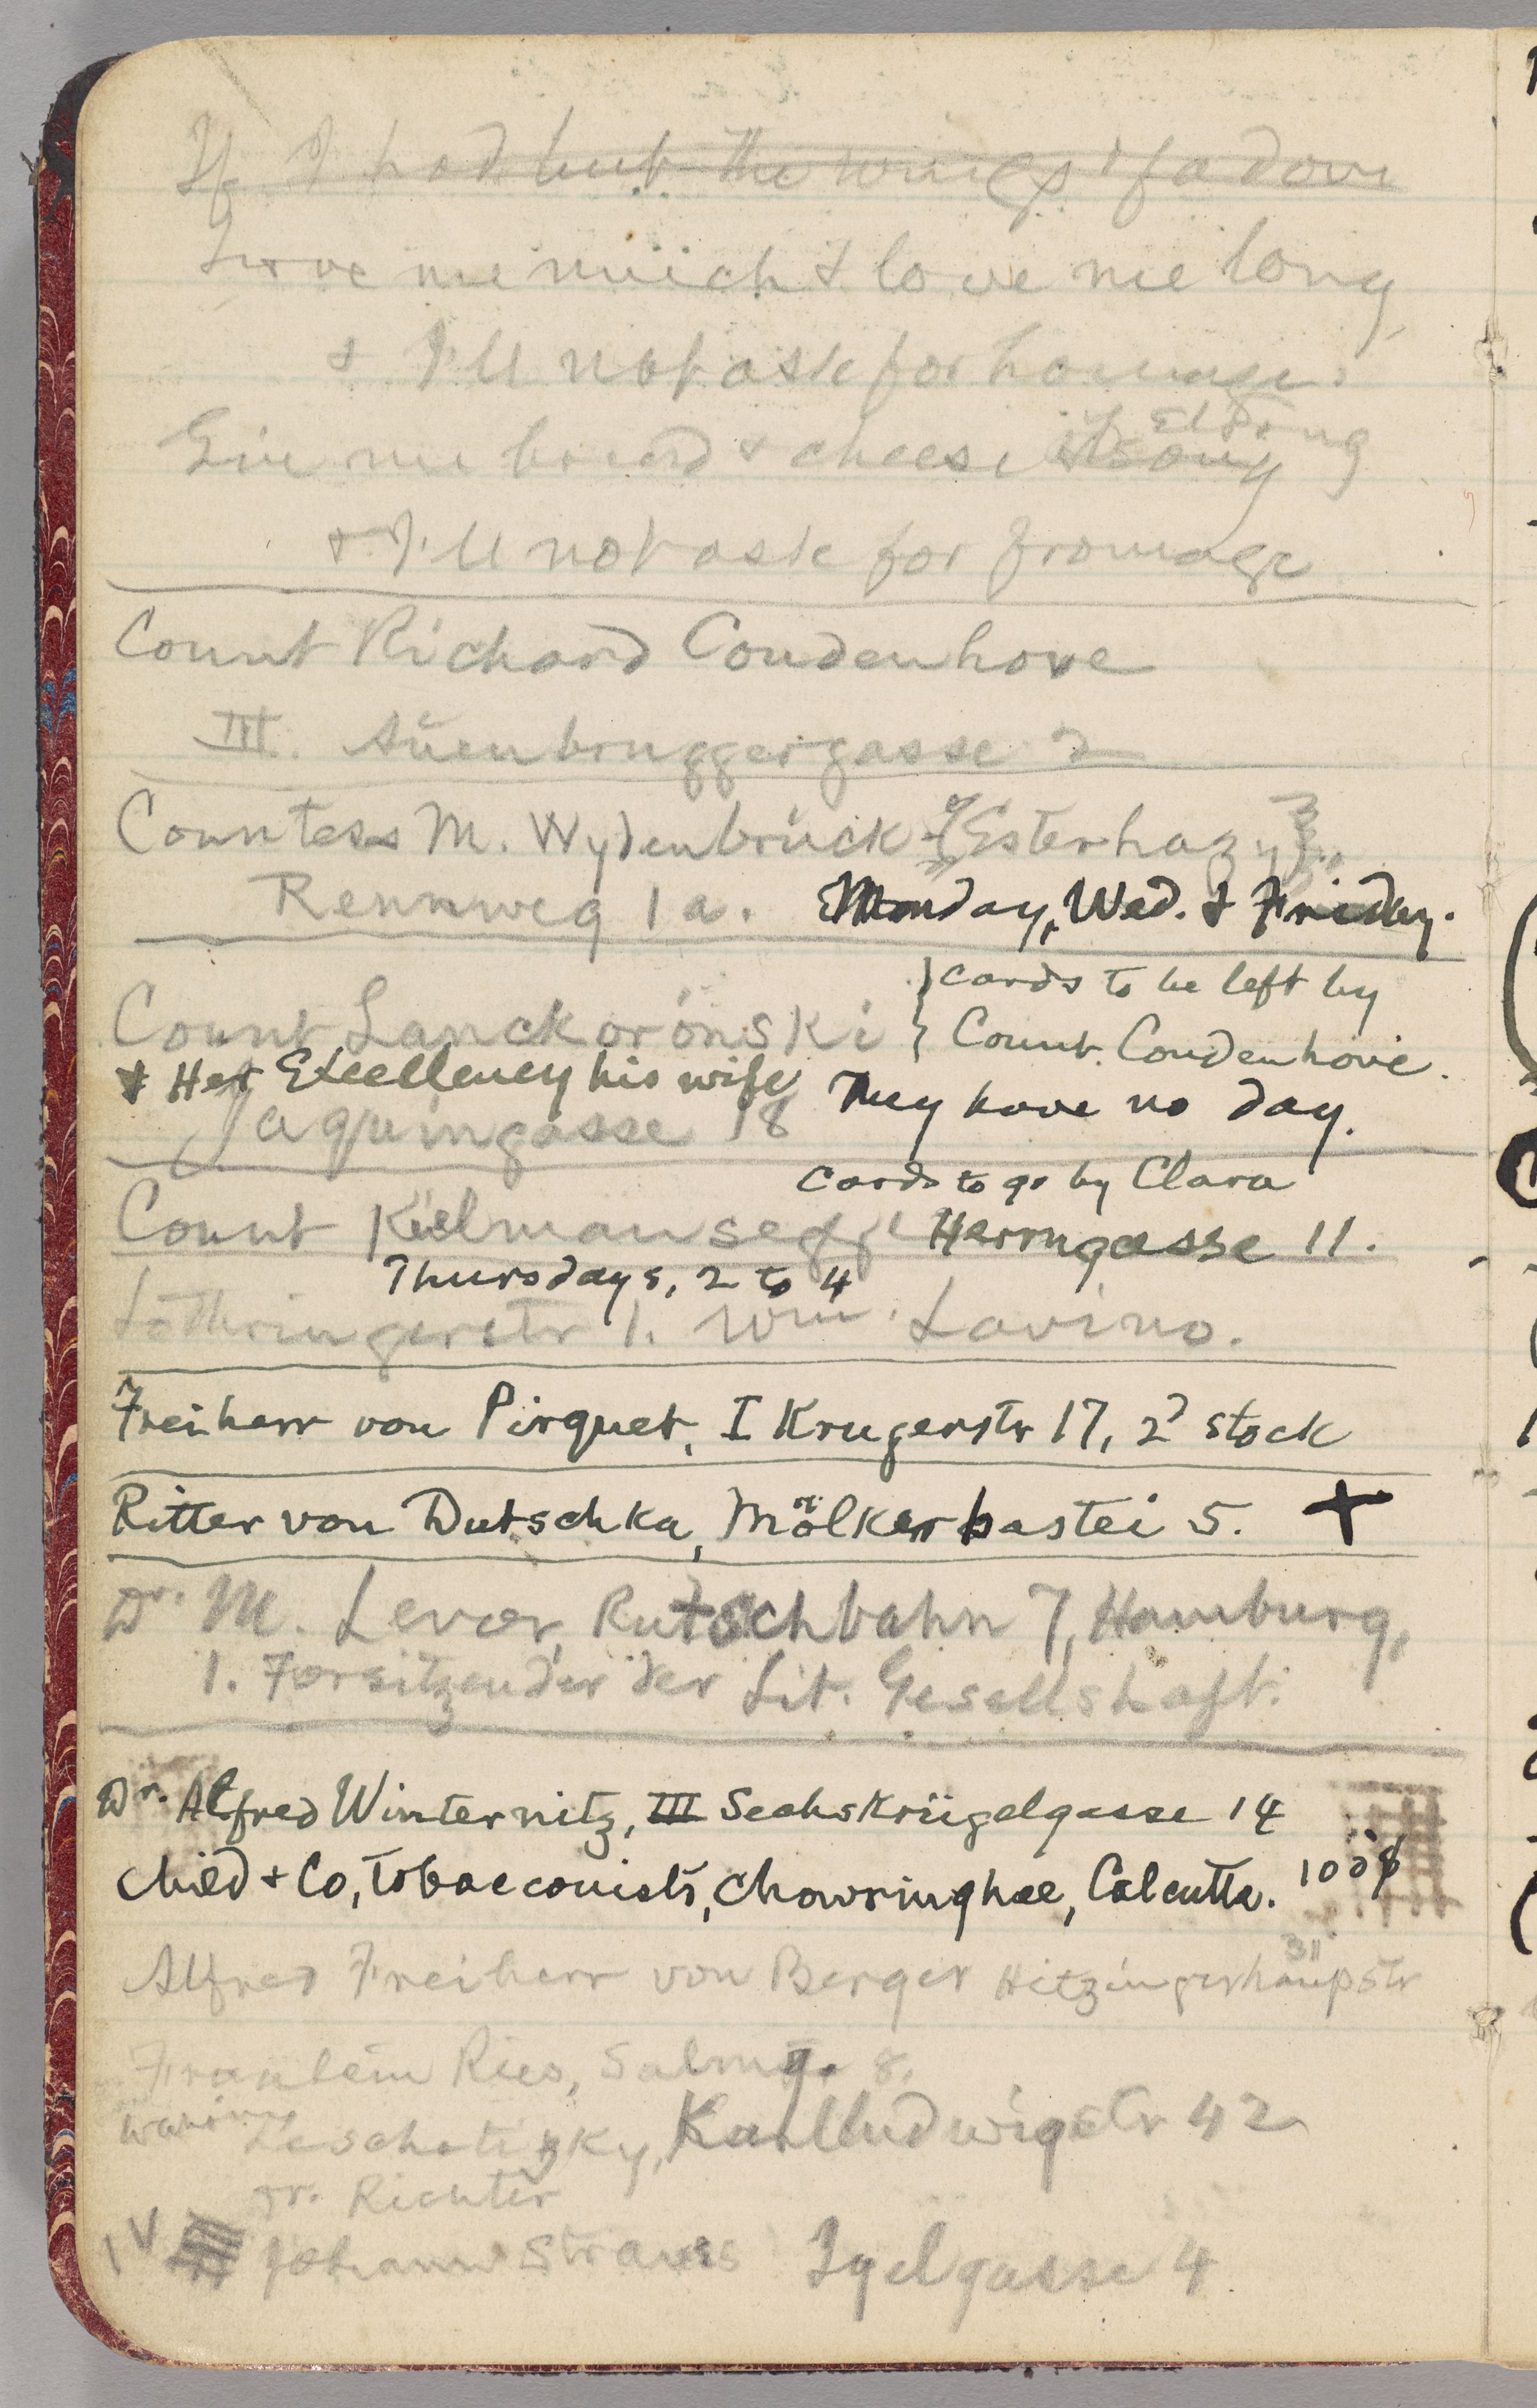 If I had but the wings of a dove
Love me much & love me long
& I'll not ask for homage.
Give me bread & cheese if strong
& I'll not ask for fromage
Count Richard Coudenhove
III. Auenbruggergasse 2
Countess M. Wydenbrück-Esterhazy
Rennweg 1a. Monday, Wed. & Friday.
Count Lanckorónski
} cards to be left by
} Count Coudenhove.
& Her Excellency his wife
They have no day.
Jaquingasse 18
cards to go by Clara
Count Kielmansegg Herrngasse 11.
Thursdays, 2 to 4
Lothringerstr 1. Wm. Lavino.
Freiherr von Pirquet, I Krugerstr 17, 2d stock
Ritter von Dutschka, Mölkerbastei 5. +
Dr. M. Lewer, Rutschbahn 7, Hamburg,
1. Forsitzender der Lit. Gesellshaft.
Dr. Alfred Winternitz, III Sechskrügelgasse 14
Child & Co, Tobacconists, Chowringhee, Calcutta. 100
Alfred Freiherr von Berger Hitzingerhaupstr
Fraulein Ries, Salmg. 8.
Leschetizky, Karlludwigstr 42
Dr. Richter
IV Johann Strauss Igelgasse 4